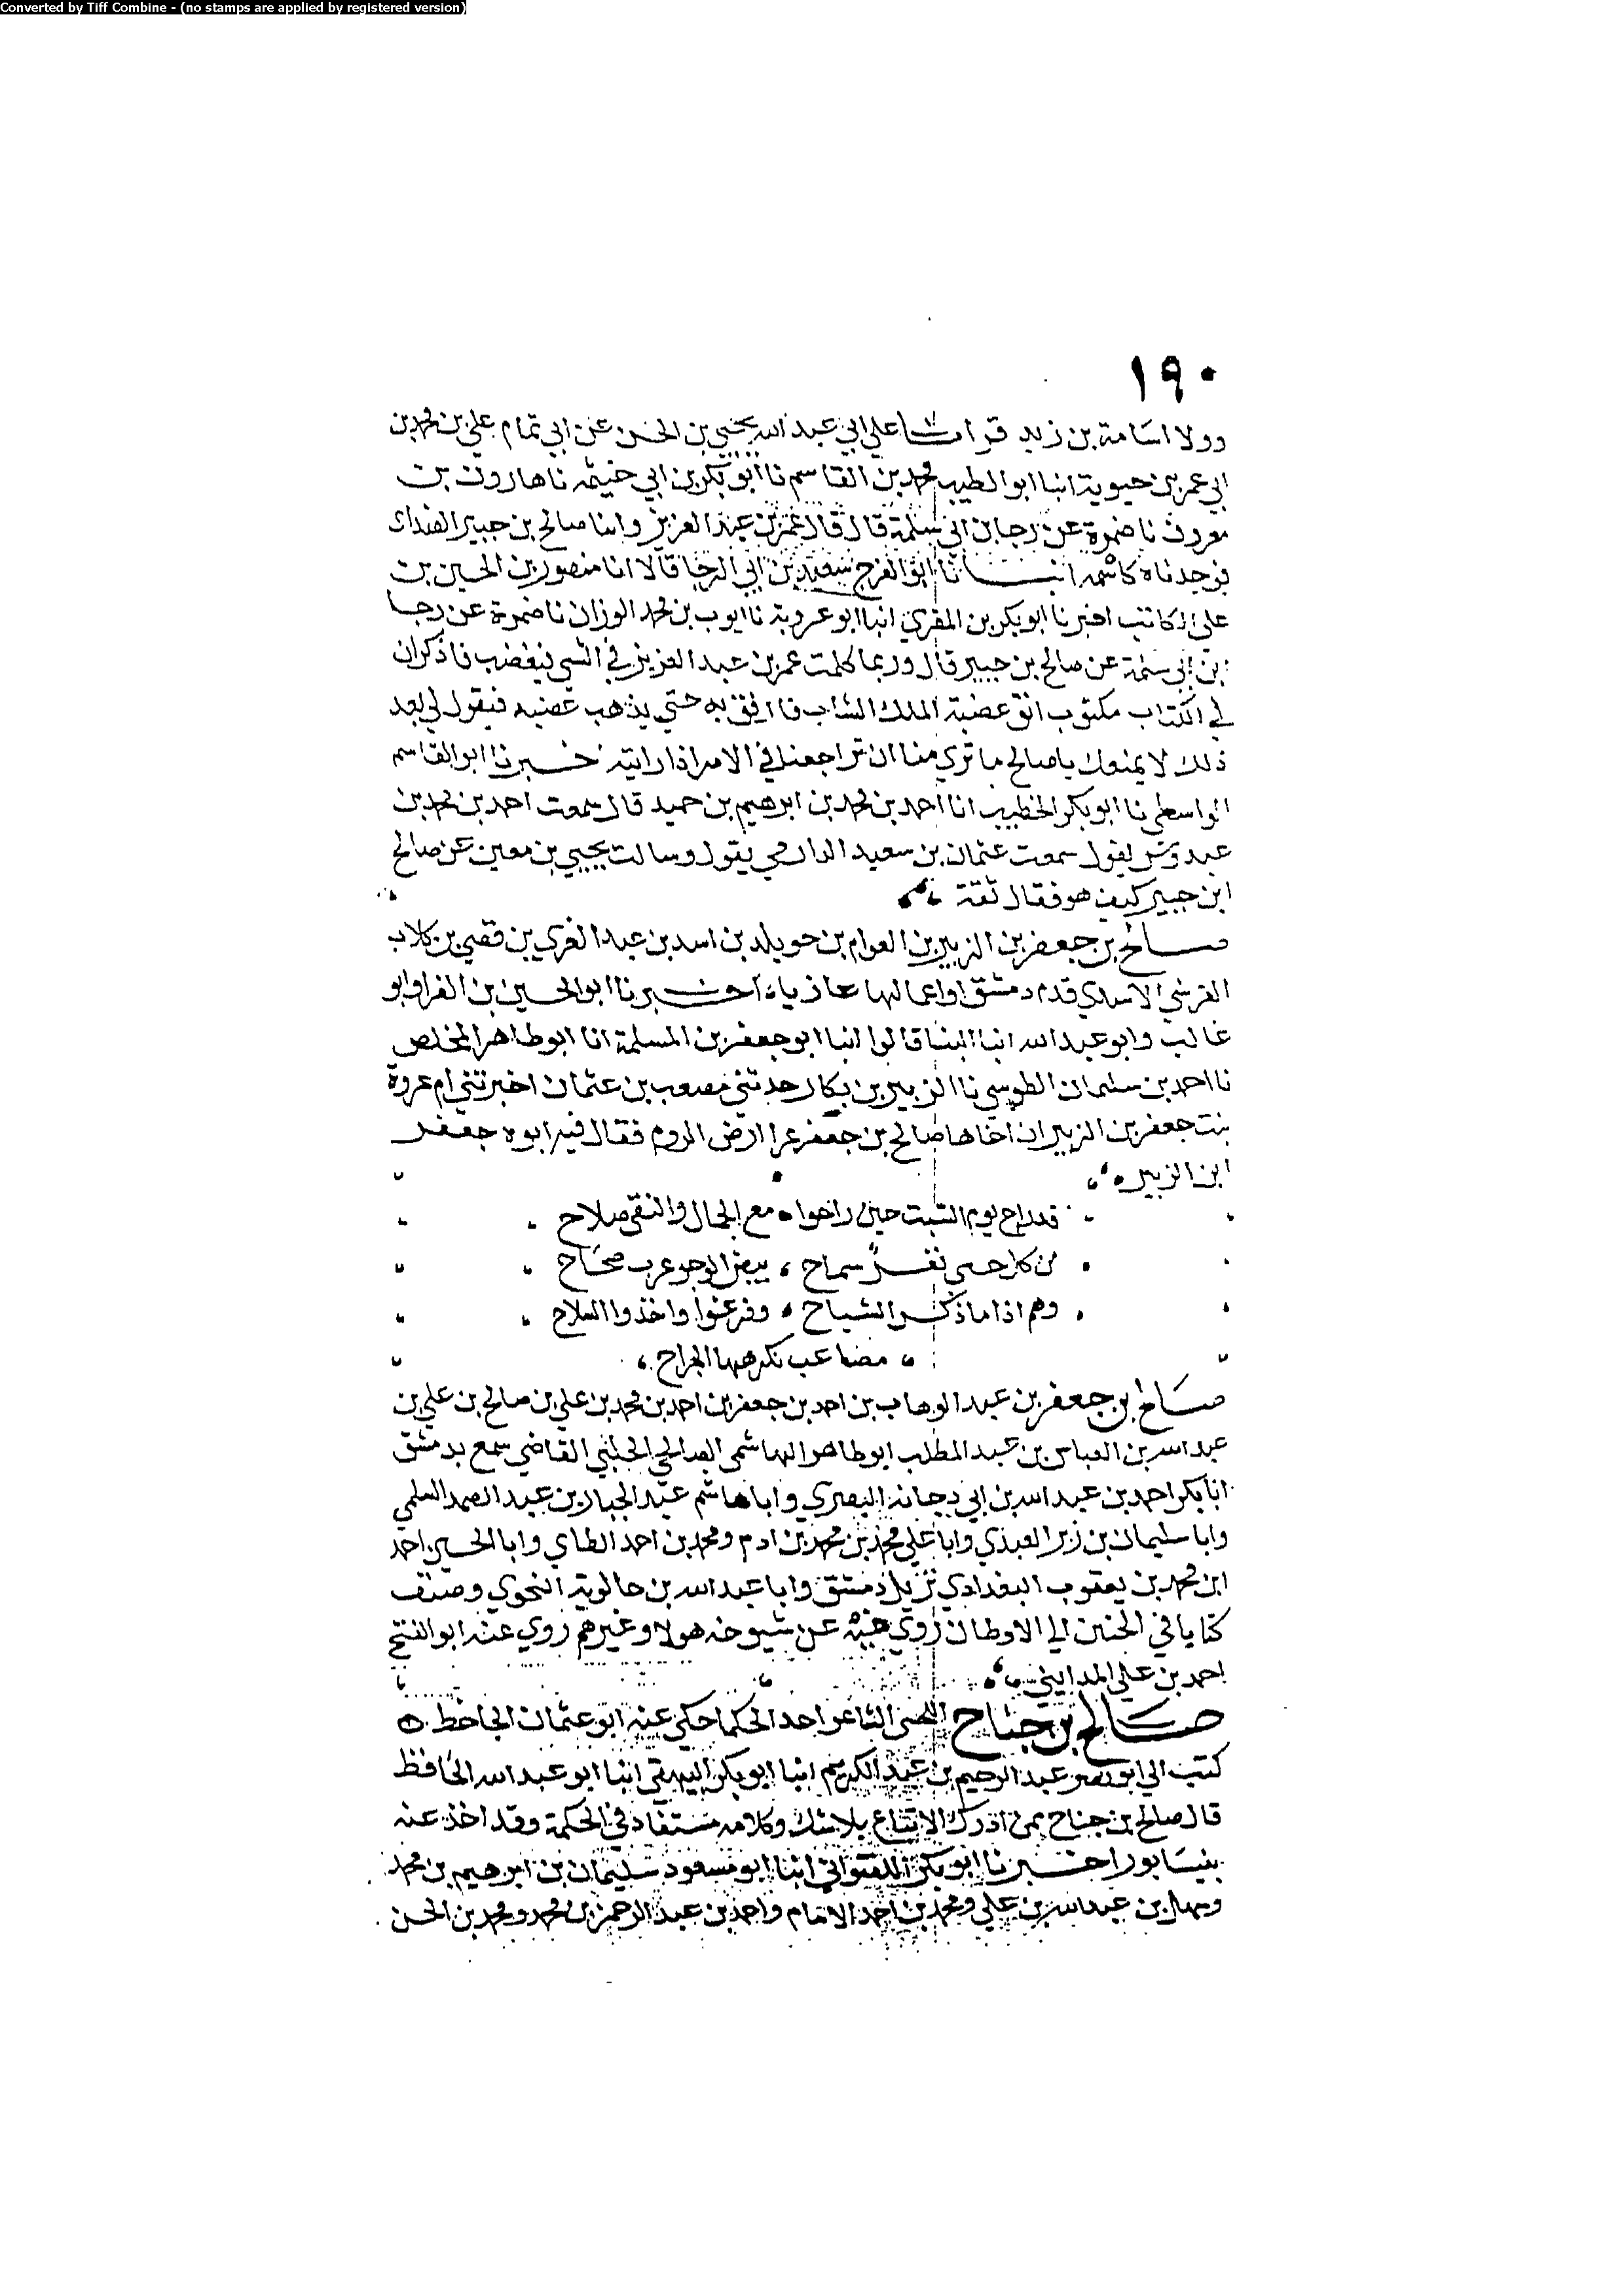 Converted by Tiff Combine - (no stamps are applied by registered version)
١٩٠
وولا اسامة بن زيد قرات على ابي عبد الله يحيى بن الحسن عن ابي تمام علي بن محمد بن
ابي عمر بن حيوية انبا ابو الطيب محمد بن القاسم نا ابو بكر بن ابي خيثمه نا هارون بن
معروف نا ضمرة عن رجا بن ابي سلمة قال قال عمر بن عبد العزيز ولينا صالح بن جبير الغداى
فوجدناه كاسمه انبانا ابو الفرج سعيد بن ابي الرجا قالا انا منصور بن الحسين بن
علي الكاتب اخبرنا ابو بكر بن المقري انبا ابو عروبة نا ايوب بن محمد الوزان نا ضمرة عن رجا
ابن ابي سلمة عن صالح بن جبير قال وربما كلمت عمر بن عبد العزيز في الشي فيغضب فاذكر ان
في الكتاب مكتوب اتق غضبة الملك الشاب فارفق به حتي يذهب غضبه فيقول لي بعد
ذلك لا يمنعك يا صالح ما تري منا ان تراجعنا في الامر اذا رايته خبرنا ابو القاسم
الواسطي نا ابو بكر الخطيب انا احمد بن محمد بن ابرهيم بن حميد قال سمعت احمد بن محمد بن
عبدوس يقول سمعت عثمان بن سعيد الدارمي يقول وسالت يحيي بن معين عن صالح
ابن جبير كيف هو فقال ثقة
صالح بن جعفر بن الزبير بن العوام بن خويلد بن اسد بن عبد العزي بن قصي بن كلاب
القرشي الاسدي قدم دمشق او اعمالها غازيا اخبرنا ابو الحسين بن الفرا وابو
غالب وابو عبد الله انبا البنا قالوا انبا ابو جعفر بن المسلمة انا ابو طاهر المخلص
نا احمد بن سلمان الطوسي نا الزبير بن بكار حدثني مصعب بن عثمان اخبرتني ام عروة
بنت جعفر بن الزبير ان اخاها صالح بن جعفر غزا ارض الروم فقال فيه ابوه جعفر
ابن الزبير
قد راح يوم السبت حين راحوا مع الجمال والتقى صلاح
من كل حي نفر سماح بيض الوجوه عرب صحاح
وهم اذا ما ذكر الشياح وفزعوا واخذوا السلاح
مصاعب نكرهها الجراح
صالح بن جعفر بن عبد الوهاب بن احمد بن جعفر بن احمد بن محمد بن علي بن صالح بن علي بن
عبد الله بن العباس بن عبد المطلب ابو طاهر الهاشمي الصالحي الحلبي القاضي سمع بدمشق
ابا بكر احمد بن عبد الله بن ابي دجانه البصري وابا هاشم عبد الجبار بن عبد الصمد السلمي
وابا سليمان بن زبر العبدي وابا علي محمد بن محمد بن ادم ومحمد بن احمد الطاي وابا الحسين احمد
ابن محمد بن يعقوب البغدادي نزيل دمشق وابا عبد الله بن خالوية النحوي وصنف
كتابا في الحنين الي الاوطان روي فيه عن شيوخه هولا وغيرهم روي عنه ابو الفتح
احمد بن علي المدايني
صالح بن جناح اللخمي الشاعر احد الحكما حكي عنه ابو عثمان الجاحظ
كتب الي ابو نصر عبد الرحيم بن عبد الكريم انبا ابو بكر البيهقي انبا ابو عبد الله الحافظ
قال صالح بن جناح ممن ادرك الاتباع بلا شك وكلامه مستفاد في الحكمة وقد اخذ عنه
بنيسابور اخبرنا ابو بكر اللفتواني انبا ابو مسعود سليمان بن ابرهيم بن محمد
وسهل بن عبد الله بن علي ومحمد بن احمد الامام واحمد بن عبد الرحمن بن محمد ومحمد بن الحسن